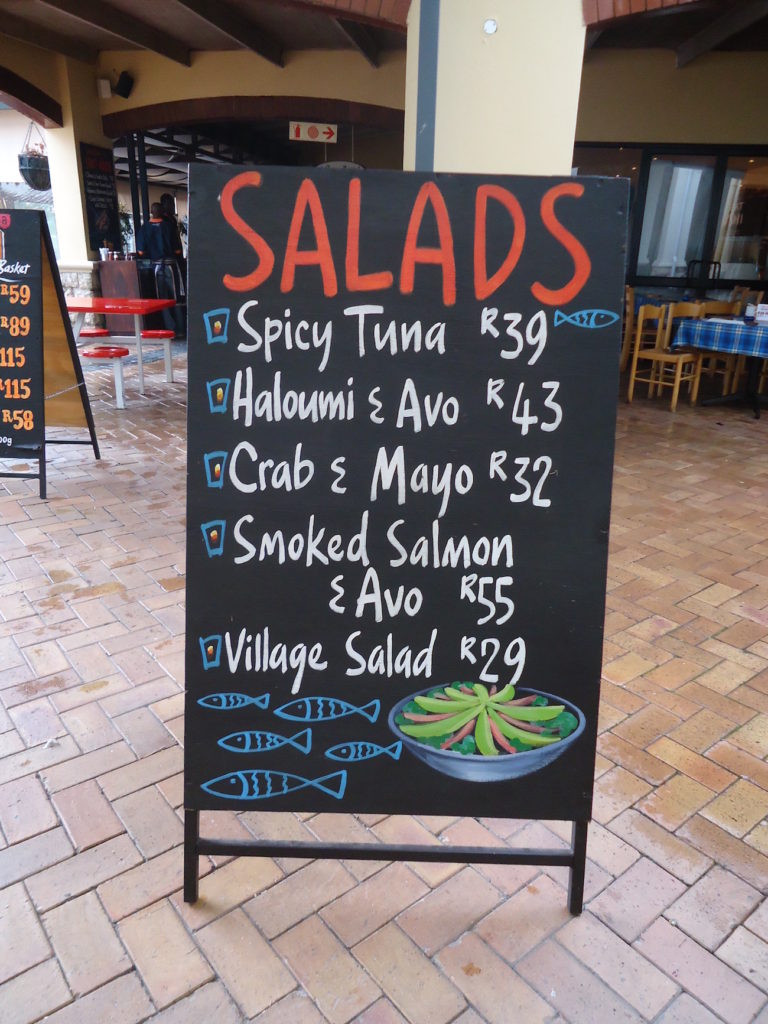 SALADS
Spicy Tuna R39
Haloumi & Avo R43
Crab & Mayo R32
Smoked Salmon
& Avo R55
Village Salad R29
Basket
R59
R89
115
R115
R58
00g